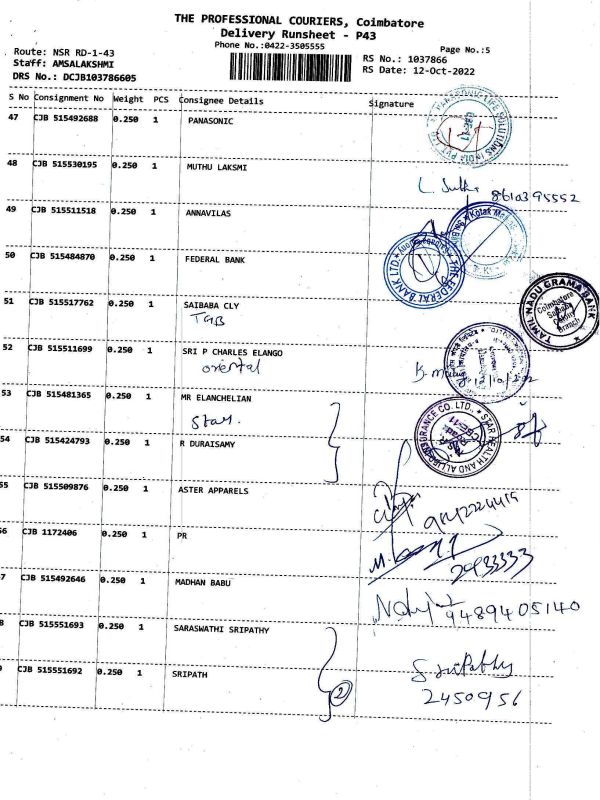 THE PROFESSIONAL COURIERS, Coimbatore
Delivery Runsheet - P43
Phone No.:0422-3505555
Page No.:5
Route: NSR RD-1-43
RS No.: 1037866
Staff: AMSALAKSHMI
RS Date: 12-Oct-2022
DRS No.: DCJB103786605
S No Consignment No Weight PCS Consignee Details Signature
47 CJB 515492688 0.250 1 PANASONIC
48 CJB 515530195 0.250 1 MUTHU LAKSMI
8610395552
49 CJB 515511518 0.250 1 ANNAVILAS
50 CJB 515484870 0.250 1 FEDERAL BANK
THE FEDERAL BANK LTD.
51 CJB 515517762 0.250 1 SAIBABA CLY
TGB
TAMIL NADU GRAMA BANK
Coimbatore
Saibaba
Colony
Branch
52 CJB 515511699 0.250 1 SRI P CHARLES ELANGO
orental
53 CJB 515481365 0.250 1 MR ELANCHELIAN
Star.
STAR HEALTH AND ALLIED INSURANCE CO. LTD.
54 CJB 515424793 0.250 1 R DURAISAMY
55 CJB 515509876 0.250 1 ASTER APPARELS
6 CJB 1172406 0.250 1 PR
7 CJB 515492646 0.250 1 MADHAN BABU
9489405140
8 CJB 515551693 0.250 1 SARASWATHI SRIPATHY
Sripathy
CJB 515551692 0.250 1 SRIPATH
2
2450956